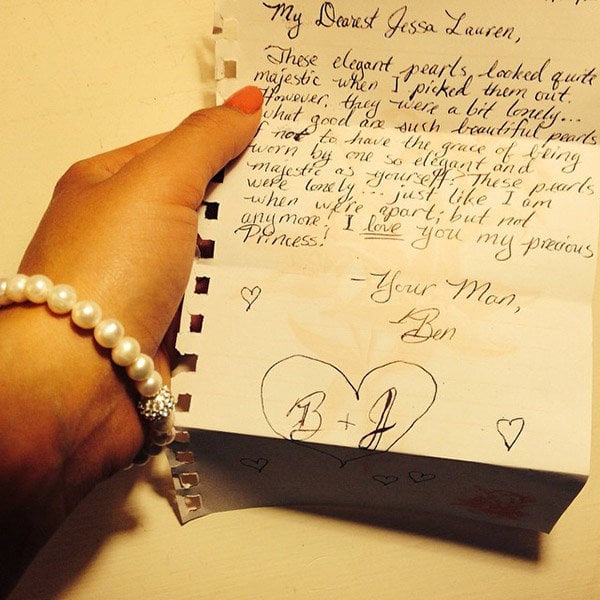 My Dearest Jessa Lauren,
These elegant pearls looked quite
majestic when I picked them out.
However, they were a bit lonely...
what good are such beautiful pearls
if not to have the grace of being
worn by one so elegant and
majestic as yourself? These pearls
were lonely... just like I am
when we're apart; but not
anymore! I love you my precious
Princess!
- Your Man,
Ben
B + J